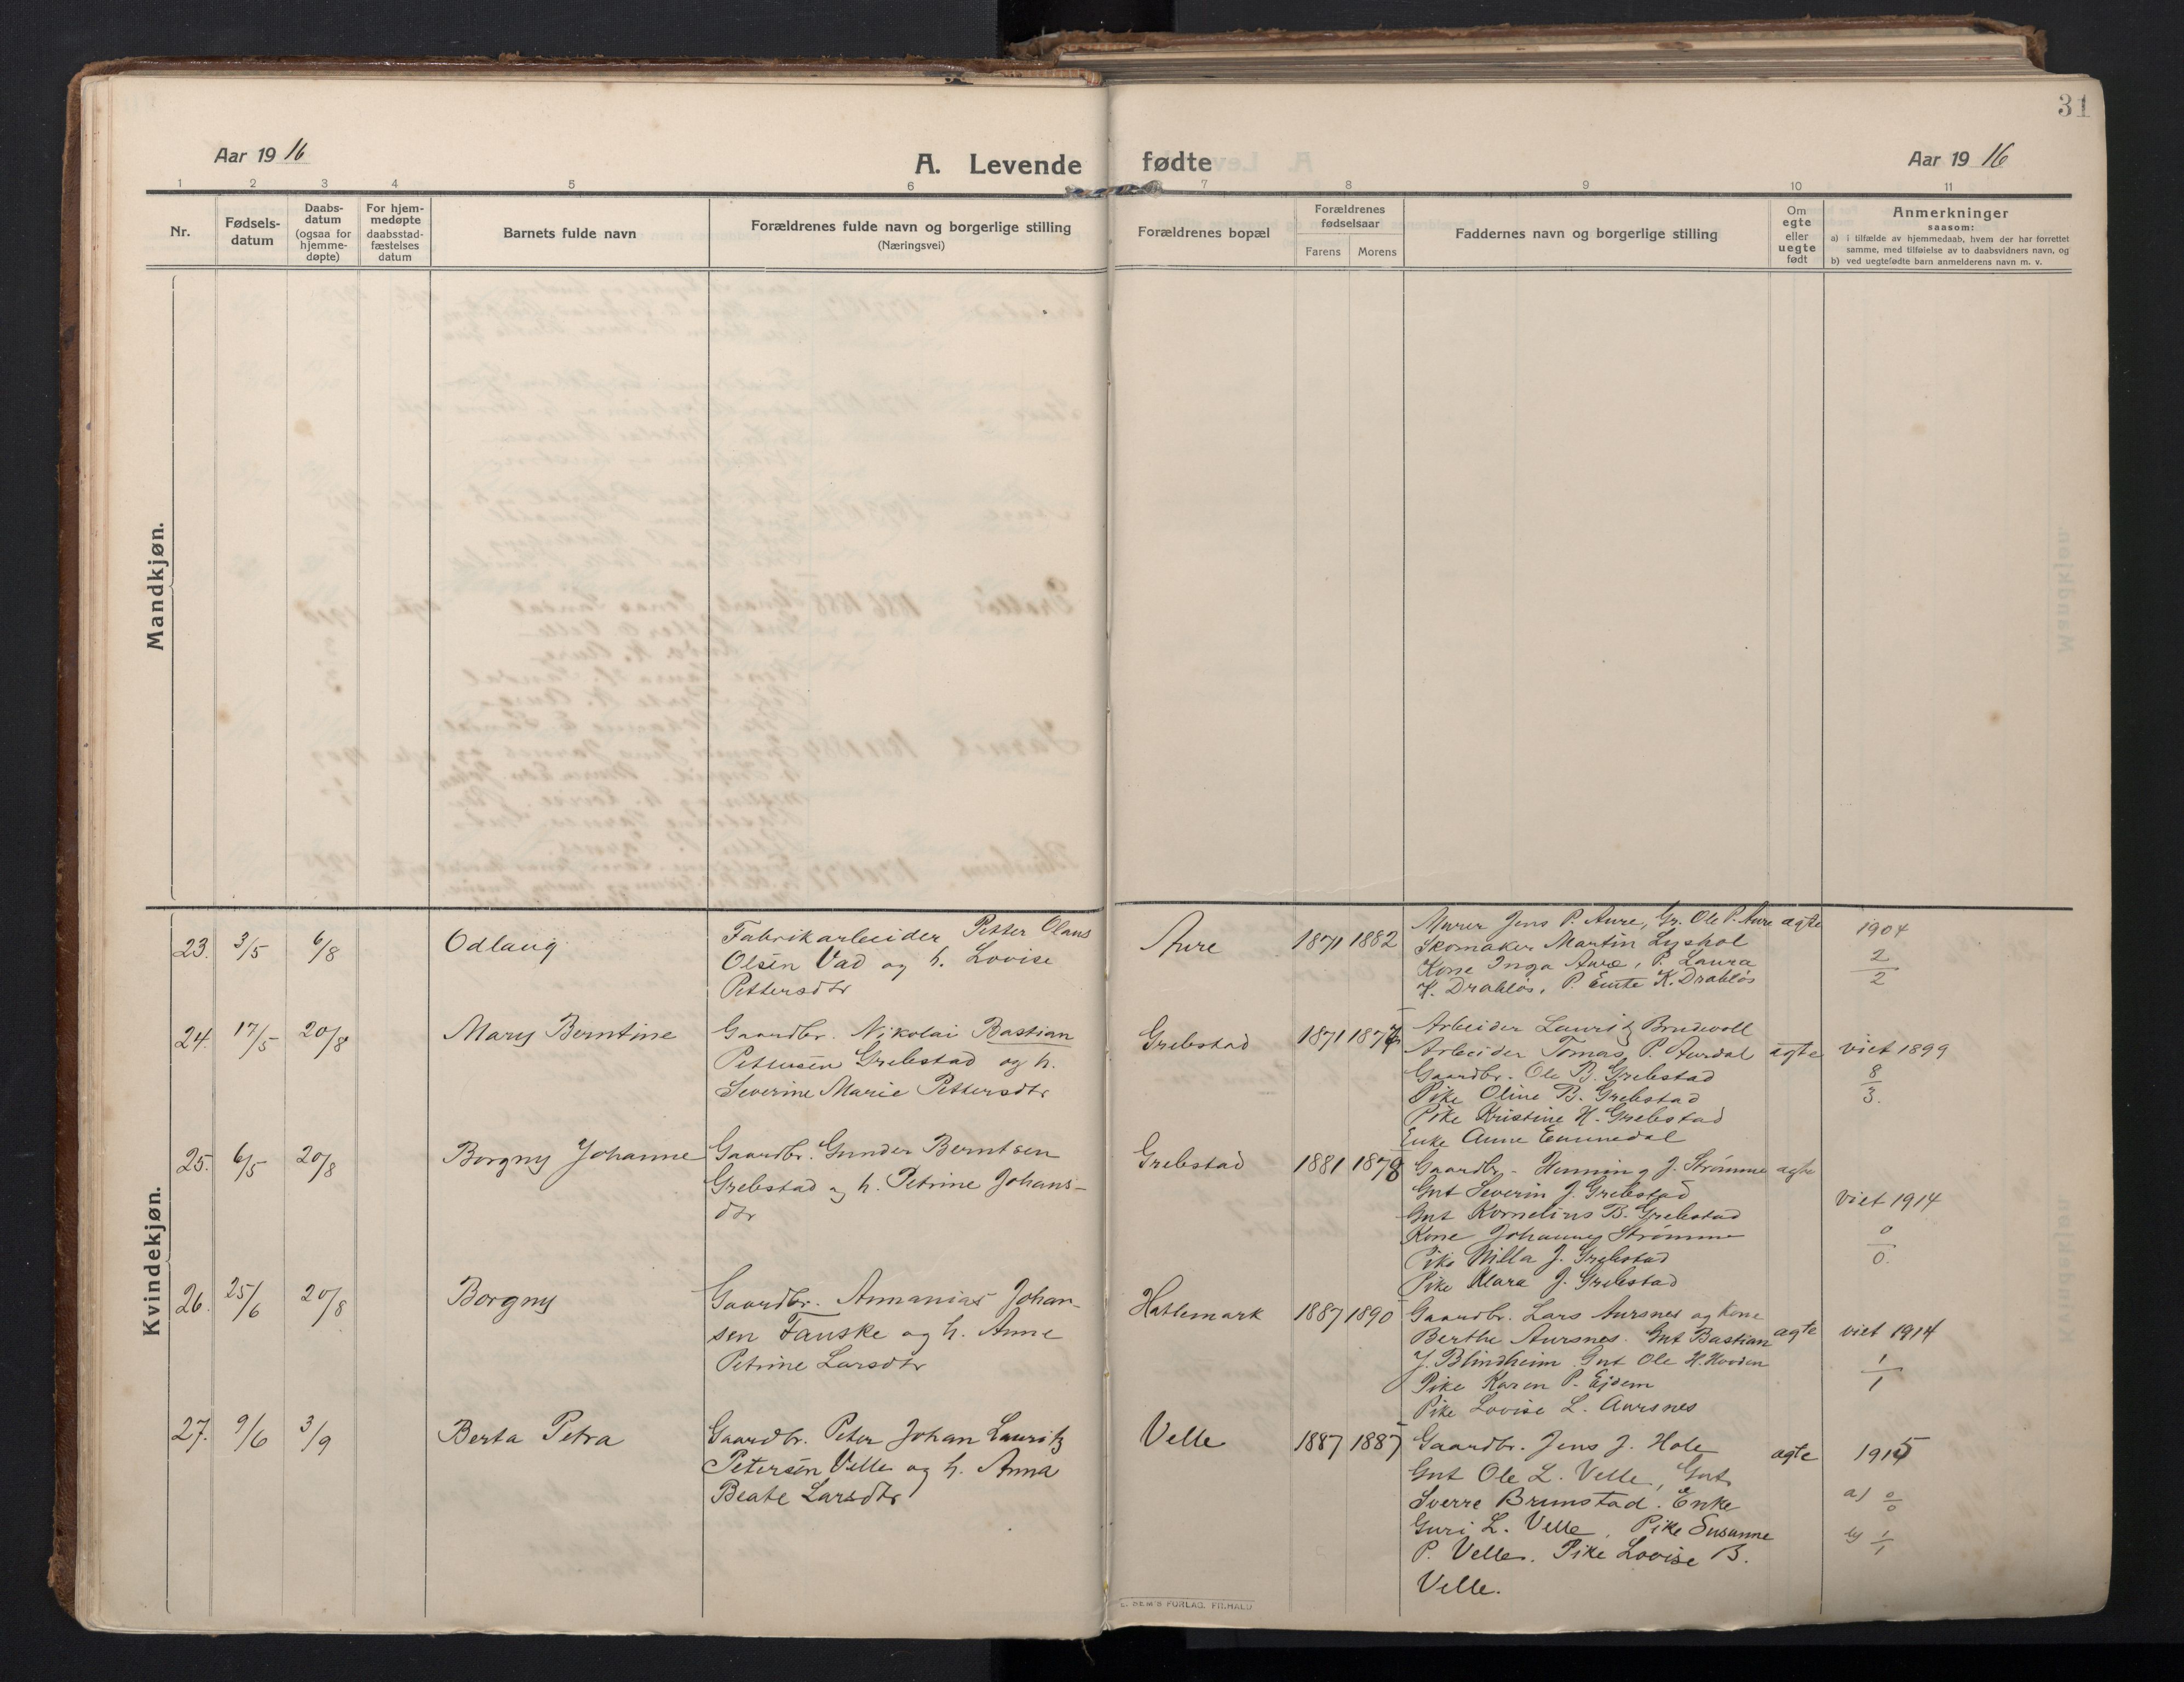 31
Aar 1916
A. Levende fødte
Aar 1916
1 2 3 4 5 6 7 8 9 10 11
Nr.
Fødsels-
datum
Daabs-
datum
(ogsaa for
hjemme-
døpte)
For hjem-
medøpte
daabsstad-
fæstelses
datum
Barnets fulde navn
Forældrenes fulde navn og borgerlige stilling
(Næringsvei)
Forældrenes bopæl
Forældrenes
fødselsaar
Farens Morens
Faddernes navn og borgerlige stilling
Om
egte
eller
uegte
født
Anmerkninger
saasom:
a) i tilfælde av hjemmedaab, hvem der har forrettet
samme, med tilføielse av to daabsvidners navn, og
b) ved uegtefødte barn anmelderens navn m. v.
Mandkjøn.
Kvindekjøn.
23. 3/5 6/8 Odlaug
Fabrikarbeider Petter Olaus
Olsen Vad og h. Lovise
Pettersdtr
Aure 1871 1882
Murer Jens P. Aure, Gr. Ole P. Aure
Skomaker Martin Lyshol
Kone Inga Aure, P. Laura
K. Drabløs, P. Emte K. Drabløs
agte
1904
2
2
24. 17/5 20/8 Mary Berntine
Gaardbr. Nikolai Bastian
Pettersen Grebstad og h.
Severine Marie Pettersdtr
Grebstad 1871
Arbeider Lauritz Brudevoll
Arbeider Tomas P. Aurdal
Gaardbr. Ole B. Grebstad
Pike Oline B. Grebstad
Pike Kristine H. Grebstad
Enke Anne Emmedal
agte
viet 1899
8
3.
25. 6/5 20/8 Borgny Johanne
Gaardbr. Gunder Berntsen
Grebstad og h. Petrine Johans-
dtr
Grebstad 1881 1878
Gaardbr. Henning J. Strømme
Gut Severin J. Grebstad
Gut Kornelius B. Grebstad
Kone Johanne Strømme
Pike Milla J. Grebstad
Pike Klara J. Grebstad
agte
viet 1914
0
0.
26. 25/6 20/8 Borgny
Gaardbr. Annanias Johan-
sen Fauske og h. Anne
Petrine Larsdtr
Hatlemark 1887 1890
Gaardbr. Lars Aursnes og Kone
Berthe Aursnes. Gut Bastian
J. Blindheim. Gut Ole H. Hovden
Pike Karen P. Ejdem
Pike Lovise L. Aursnes
agte
viet 1914
1
1
27. 9/6 3/9 Berta Petra
Gaardbr. Peter Johan Lauritz
Petersen Velle og h. Anna
Beate Larsdtr
Velle 1887 1887
Gaardbr. Jens J. Hole
Gut Ole L. Velle, Gut
Sverre Brunstad. Enke
Guri L. Velle, Pike Susanne
P. Velle. Pike Lovise B.
Velle.
agte
1915
a) 0/0
b) 1/1
E. SEM'S FORLAG, FR.HALD